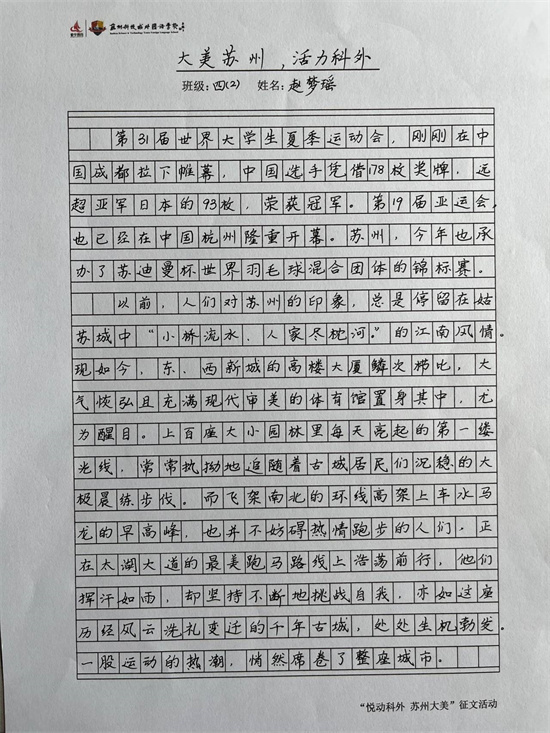 苏州科技城外国语学校
大美苏州，活力科外
班级：四(2) 姓名：赵梦瑶
第31届世界大学生夏季运动会，刚刚在中
国成都拉下帷幕，中国选手凭借178枚奖牌，远
超亚军日本的93枚，荣获冠军。第19届亚运会，
也已经在中国杭州隆重开幕。苏州，今年也承
办了苏迪曼杯世界羽毛球混合团体的锦标赛。
以前，人们对苏州的印象，总是停留在姑
苏城中“小桥流水，人家尽枕河。”的江南风情。
现如今，东、西新城的高楼大厦鳞次栉比，大
气恢弘且充满现代审美的体育馆置身其中，尤
为醒目。上百座大小园林里每天亮起的第一缕
光线，常常执拗地追随着古城居民们沉稳的太
极晨练步伐。而飞架南北的环线高架上车水马
龙的早高峰，也并不妨碍热情跑步的人们，正
在太湖大道的最美跑马路线上浩荡前行，他们
挥汗如雨，却坚持不断地挑战自我，亦如这座
历经风云洗礼变迁的千年古城，处处生机勃发。
一股运动的热潮，悄然席卷了整座城市。
“悦动科外 苏州大美”征文活动